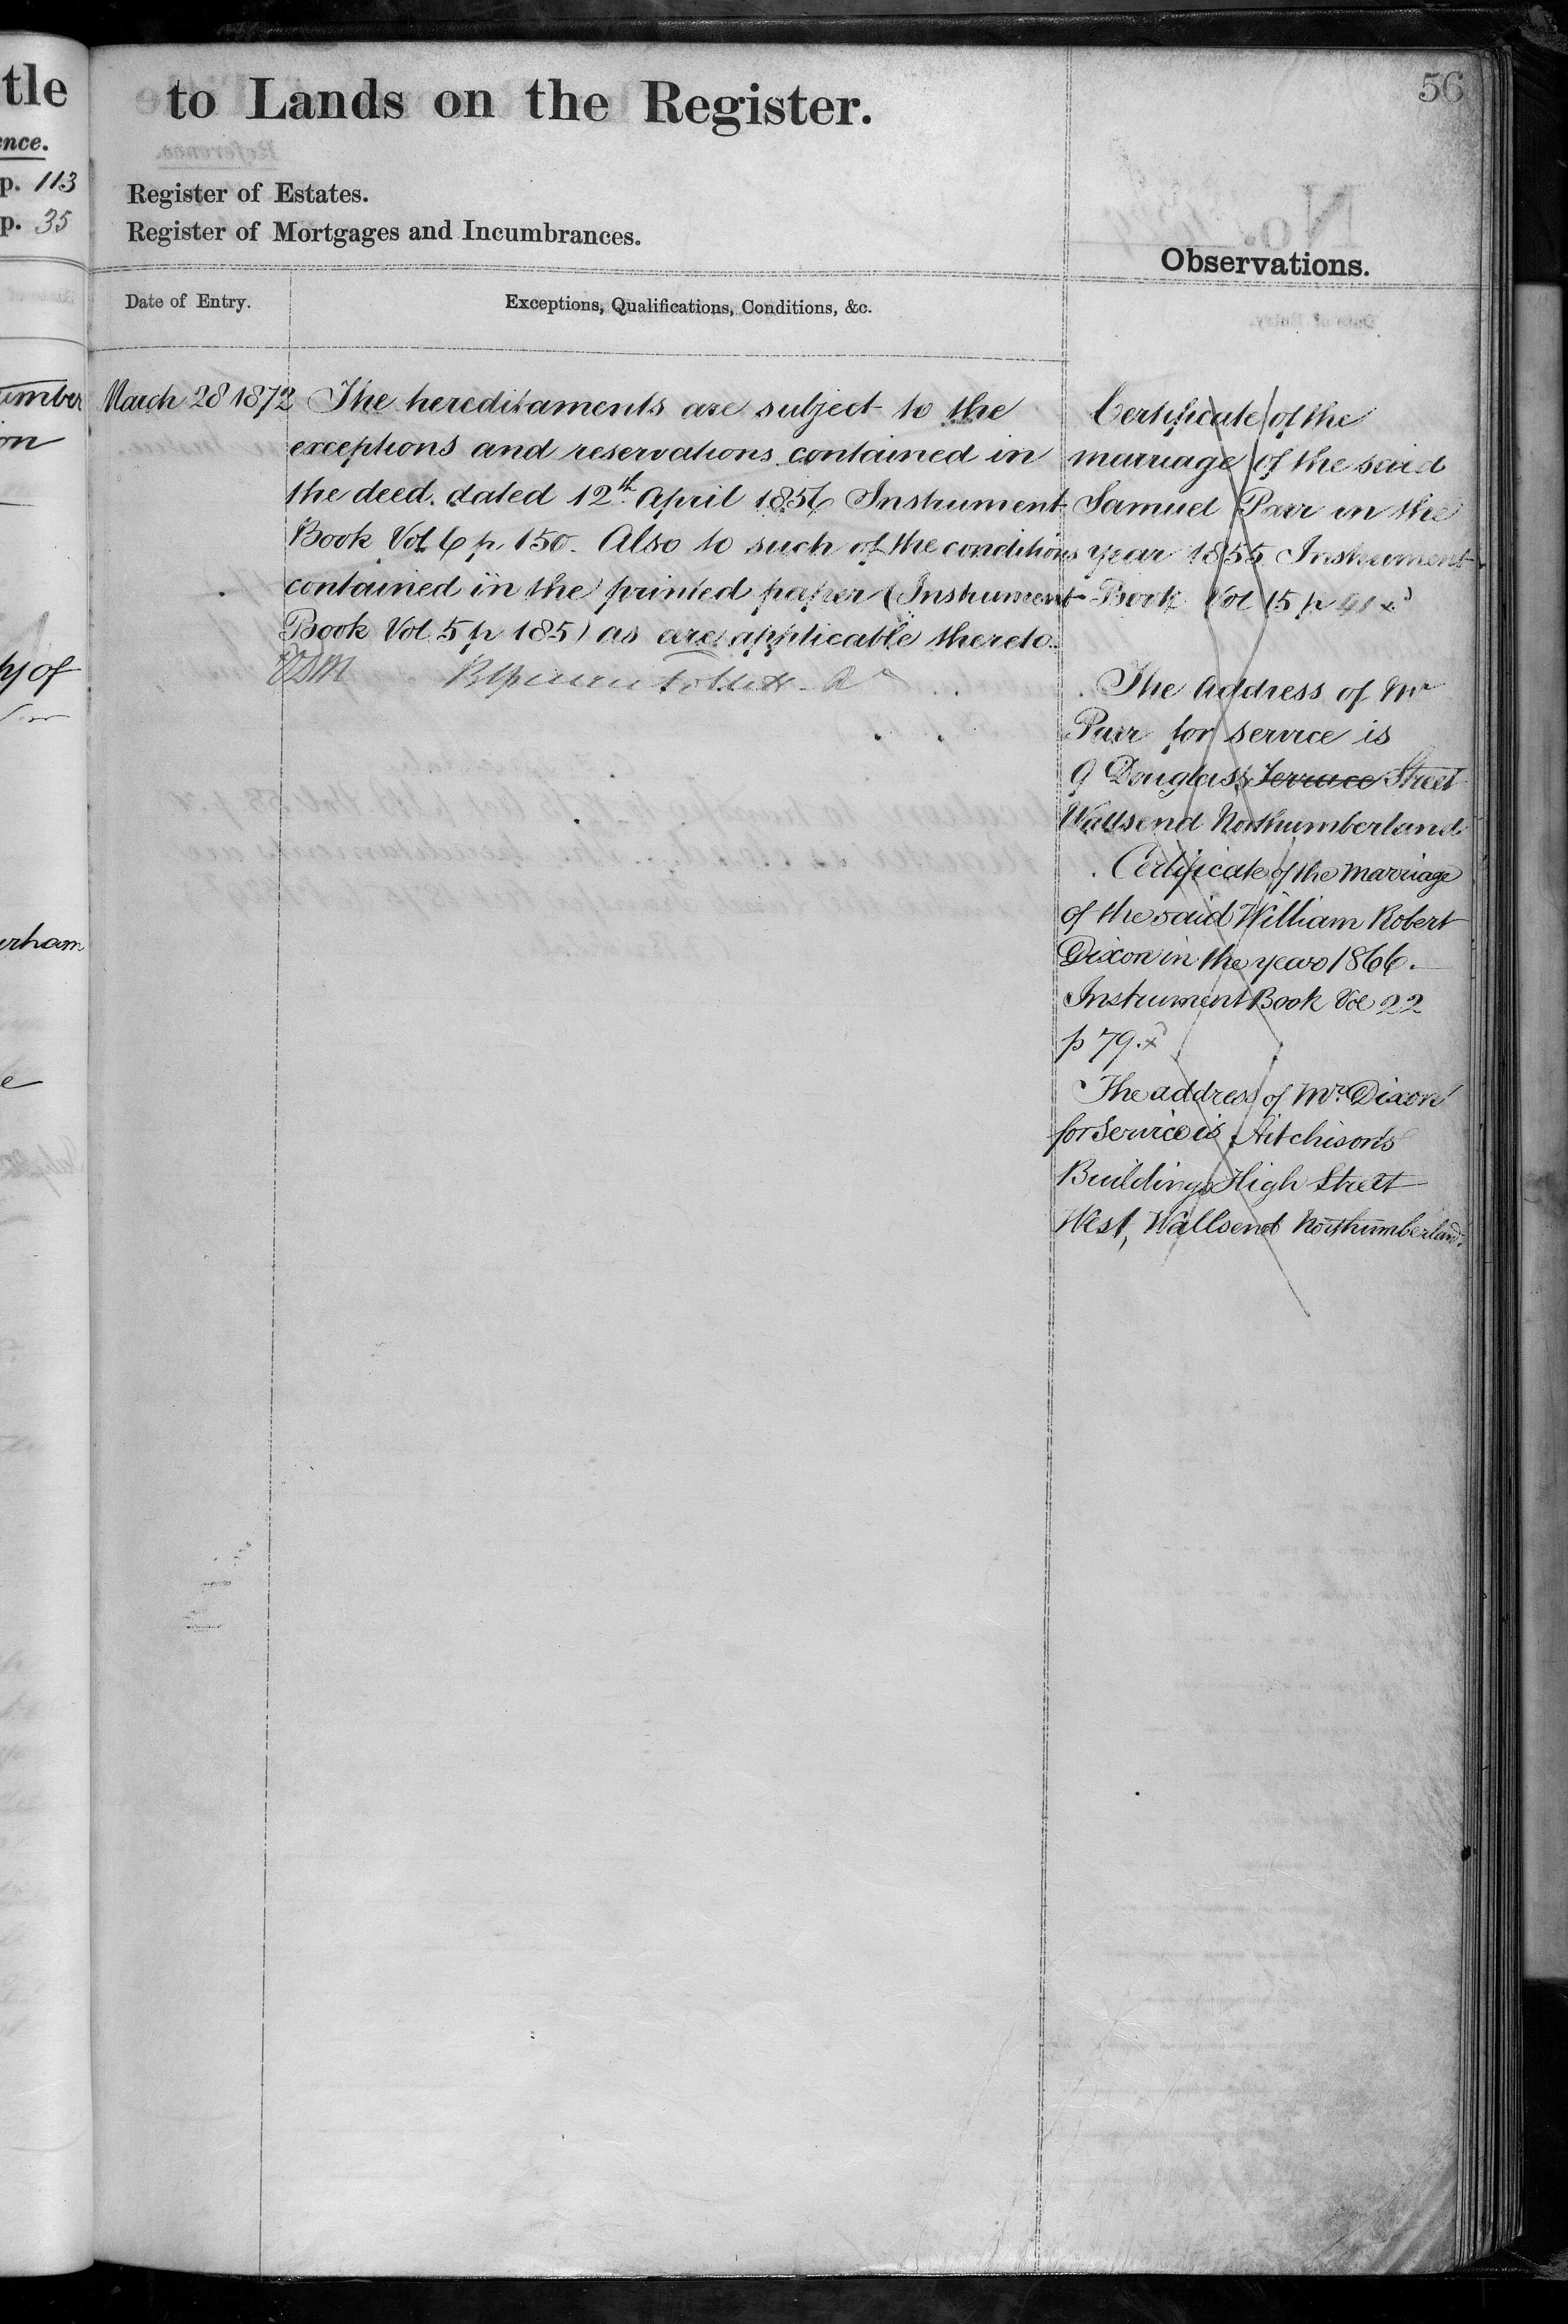 tle
ence.
p. 113
p. 35
on
hy of
erham
e
56
to Lands on the Register.
Register of Estates.
Register of Mortgages and Incumbrances.
Observations.
Date of Entry.
Exceptions, Qualifications, Conditions, &c.
March 28 1872
The hereditaments are subject to the
exceptions and reservations contained in
the deed dated 12th April 1856 Instrument
Book Vol. 6 p. 150. Also to such of the conditions
contained in the printed paper (Instrument
Book Vol. 5 p 185) as are applicable thereto.
Certificate of the
marriage of the said
Samuel Parr in the
year 1855 Instrument
Book Vol 15 p 41 xd
The address of Mr
Parr for service is
9 Douglass Terrace Street
Wallsend Northumberland
Certificate of the marriage
of the said William Robert
Dixon in the year 1866.
Instrument Book Vol 22
p 79. xd
The address of Mr. Dixon
for Service is Aitchison's
Buildings High Street
West, Wallsend Northumberland.